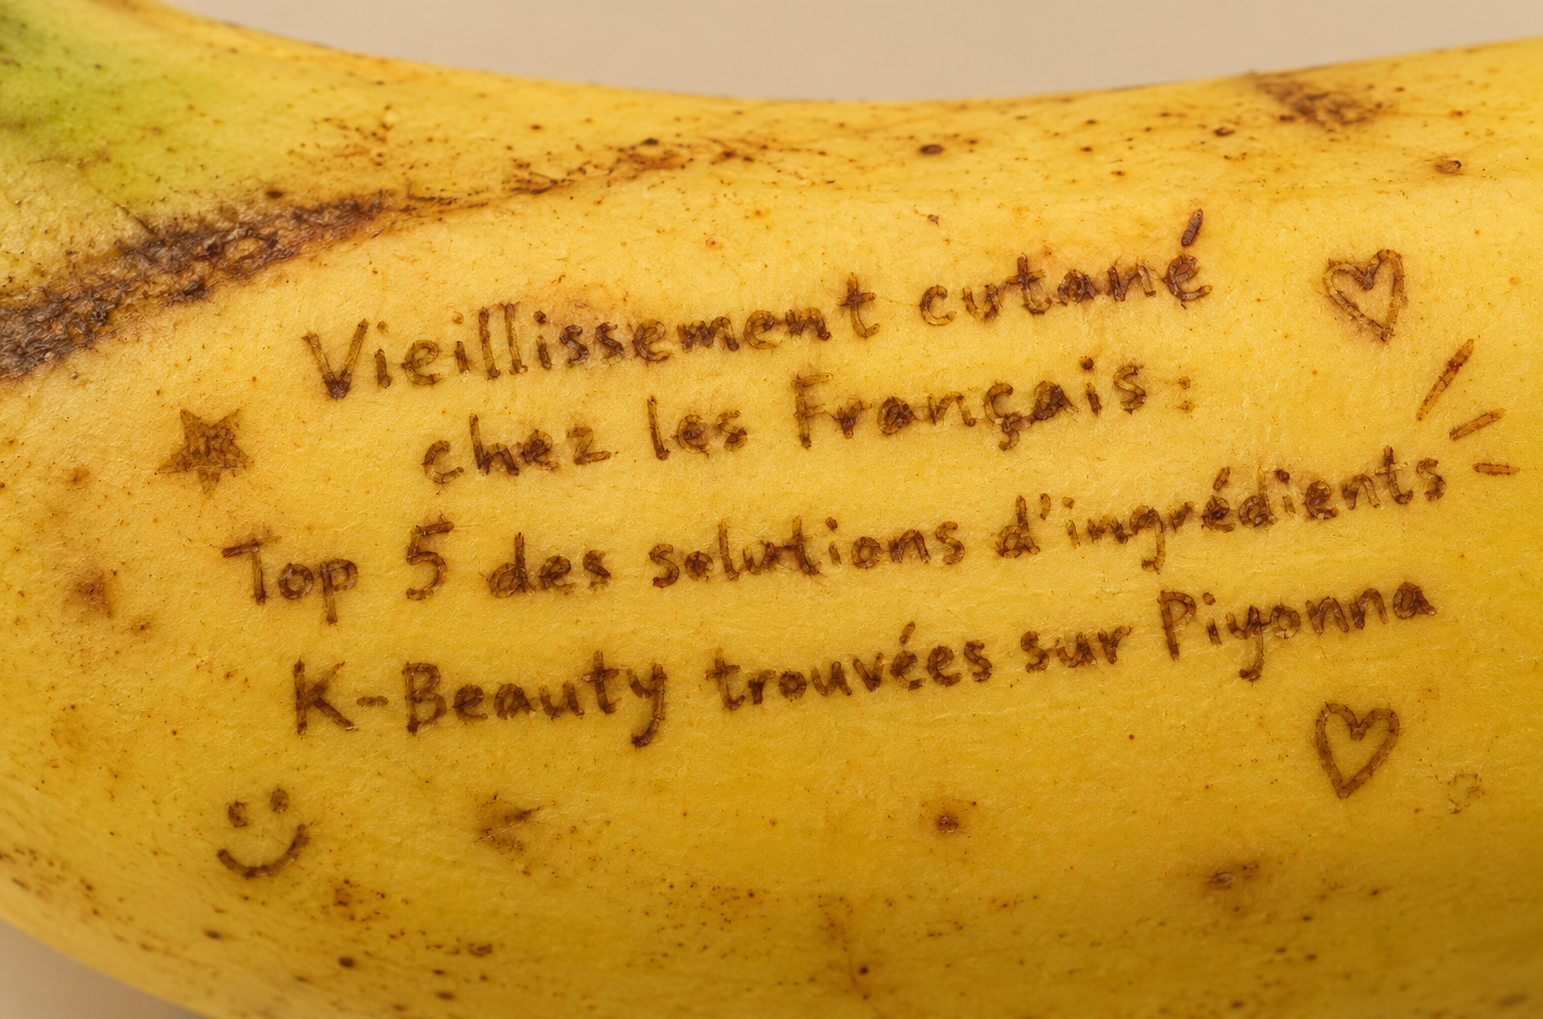 Vieillissement cutané
chez les Français:
Top 5 des solutions d'ingrédients
K-Beauty trouvées sur Piyonna